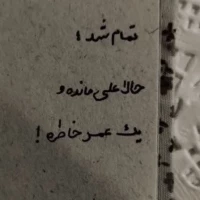 تمام شد!
حالا علی مانده و
یک عمر خاطره!